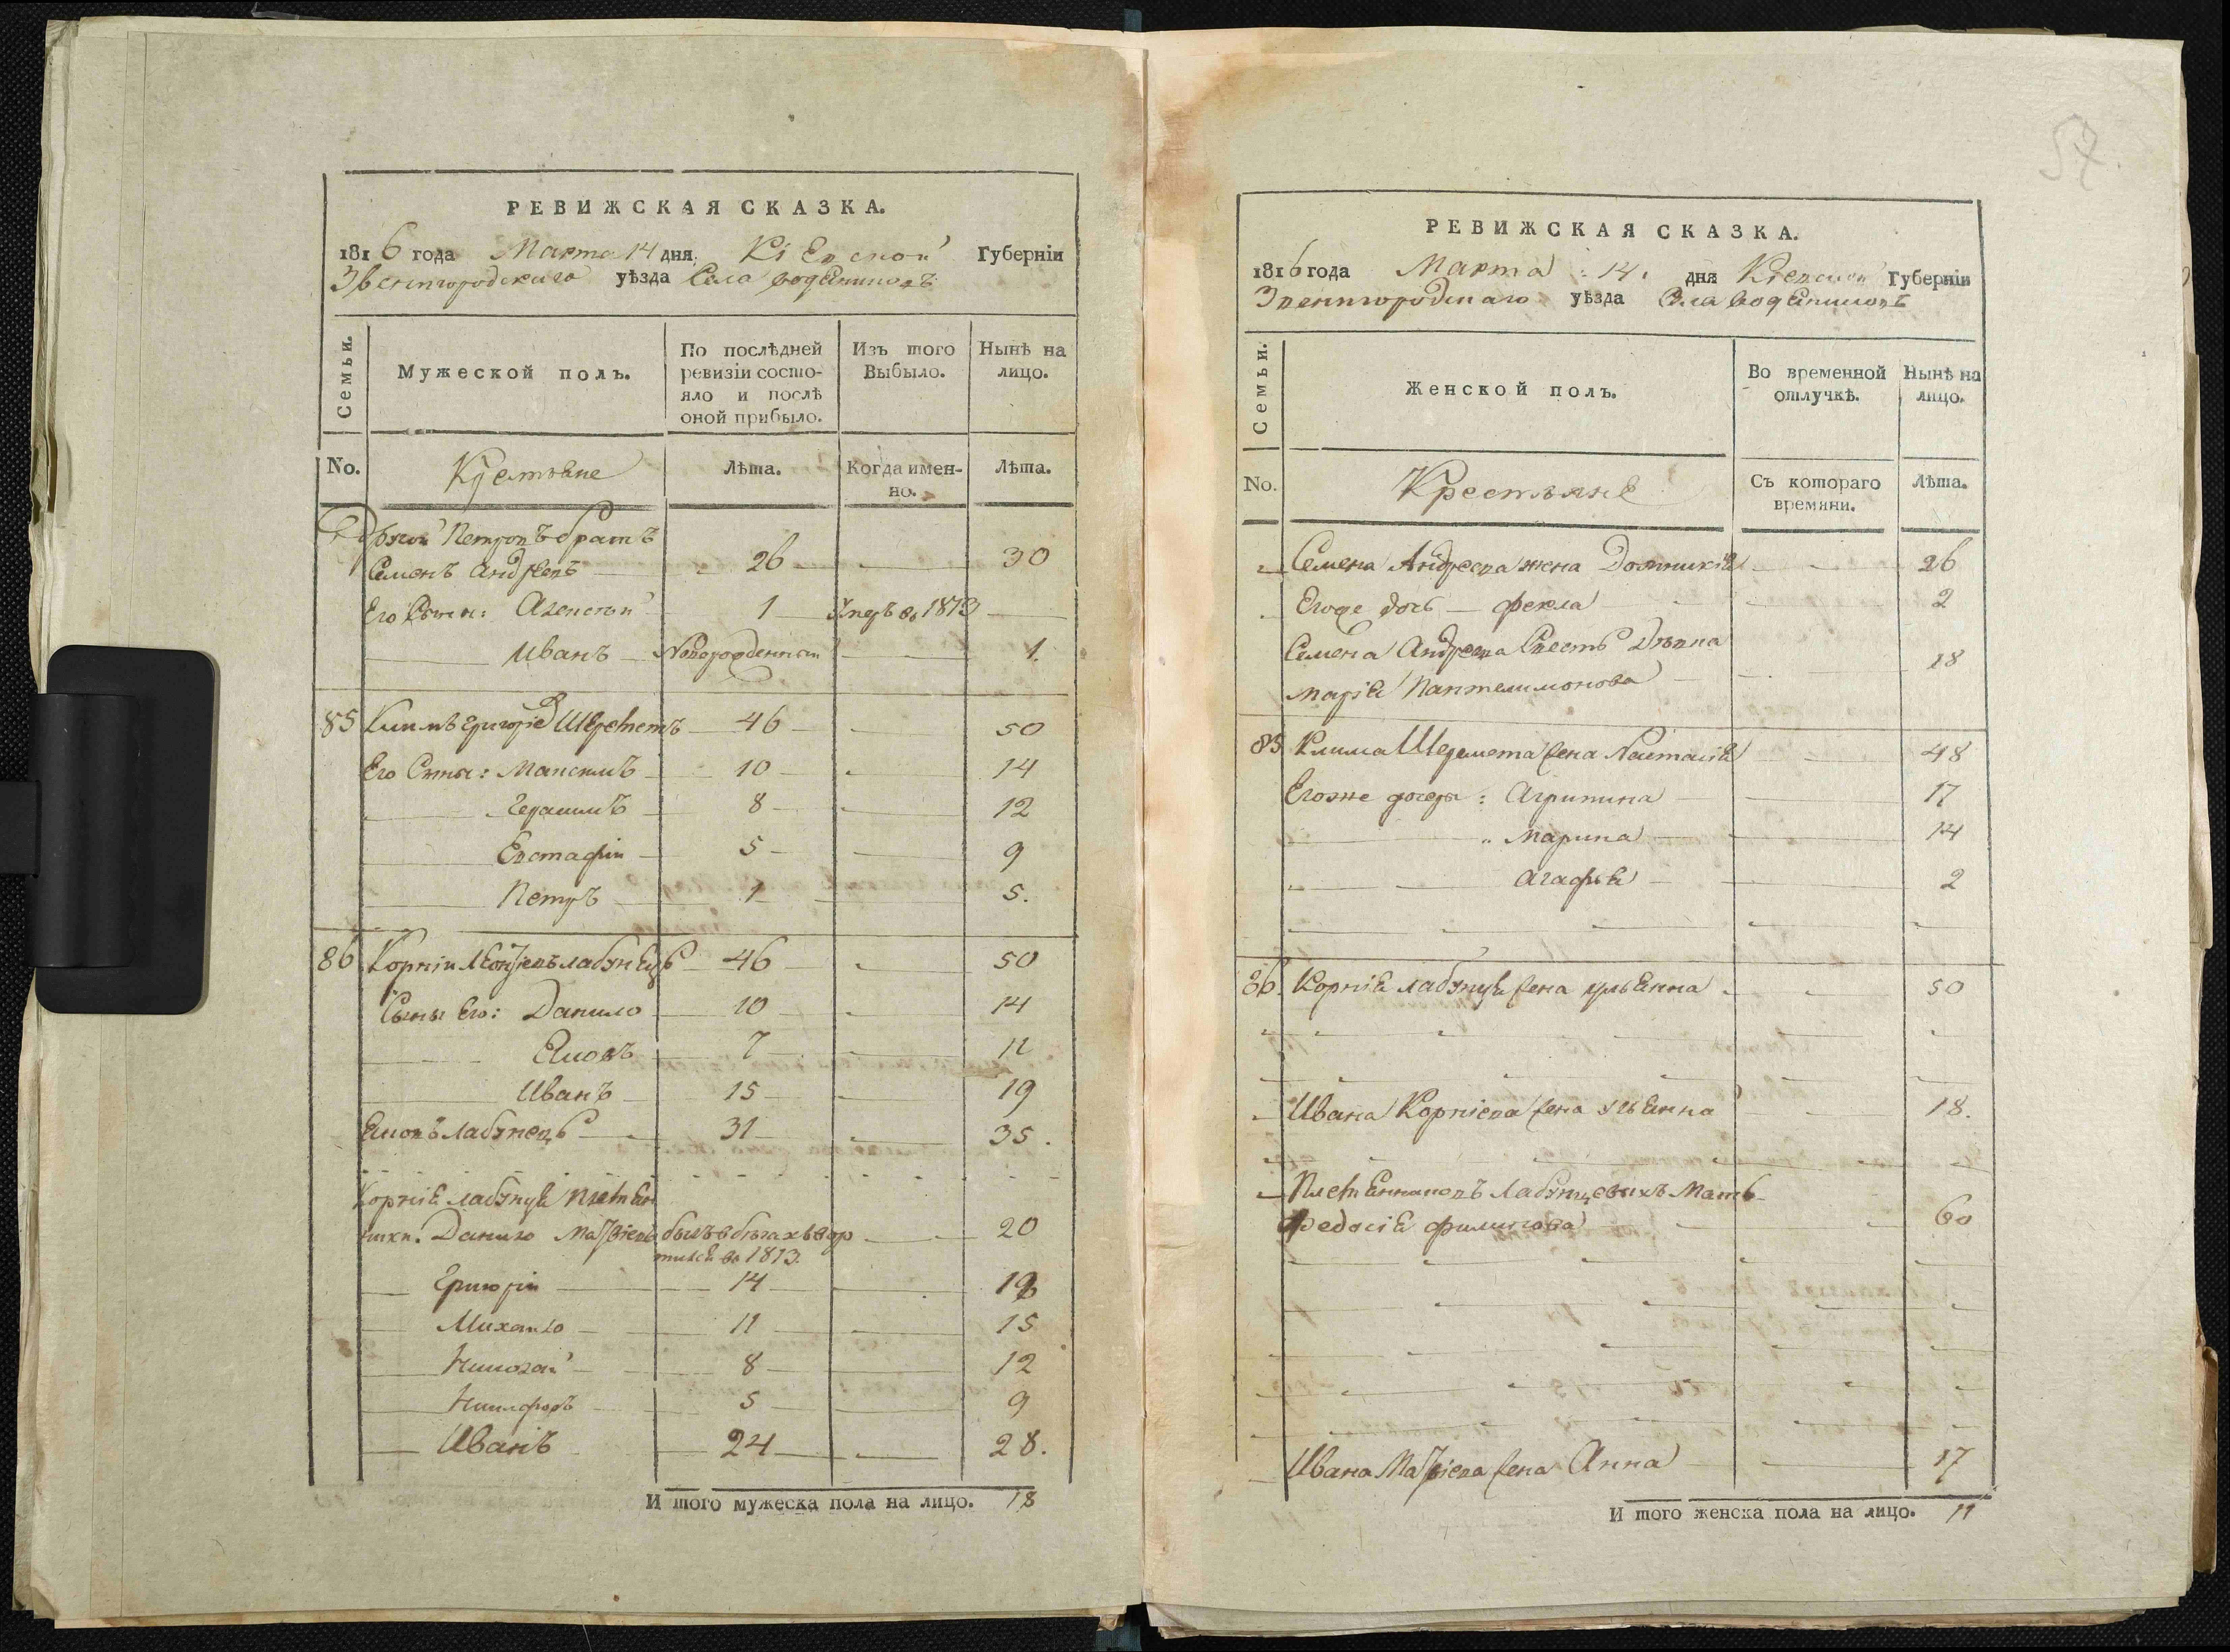 РЕВИЖСКАЯ СКАЗКА.
1816 года Марта 14 дня Кіевской Губерніи
Звенигородскаго уѣзда Села Водяниковъ
Семьи.
Мужеской полъ.
По послѣдней ревизіи состояло и послѣ оной прибыло.
Изъ того Выбыло.
Нынѣ на лицо.
No.
Крестьяне
Лѣта.
Когда именно.
Лѣта.
Петровъ братъ
Семенъ Андреевъ 26 30
Его Сыны: 1 1813
Иванъ Новорожденный 1.
85 Климъ Григоріевъ Шереметъ 46 50
Его Сыны: Максимъ 10 14
Герасимъ 8 12
Евстафій 5 9
Петръ 1 5.
86 Корній Лабзнецъ 46 50
Сыны Его: Данило 10 14
Яковъ 7 11
Иванъ 15 19
Яковъ Лабзнецъ 31 35.
Корнія Лабзнца Племян
ники: Данило Матвіевъ былъ в бѣгах вор 20
тился в 1813.
Григорій 14 18
Михайло 11 15
Николай 8 12
Никифоръ 5 9
Иванъ 24 28.
И того мужеска пола на лицо. 18
57.
РЕВИЖСКАЯ СКАЗКА.
1816 года Марта 14. дня Кіевской Губерніи
Звенигородскаго уѣзда Села Водяниковъ
Семьи.
Женской полъ.
Во временной отлучкѣ.
Нынѣ на лицо.
No.
Крестьяне
Съ котораго времяни.
Лѣта.
Семена Андреева жена Домникія 26
Егоже дочь Фекла 2
Семена Андреева
Марія Пантелимонова 18
85 Клима Шеремета жена Настасія 48
Егоже дочери: Агрипина 17
Марина 14
Агафія 2
86. Корнія Лабзнца жена Ульянна 50
Ивана Корніева жена Ульянна 18.
Племянниковъ Лабзнцевыхъ Мать
Федосія Филипова 60
Ивана Матвіева жена Анна 17
И того женска пола на лицо. 11